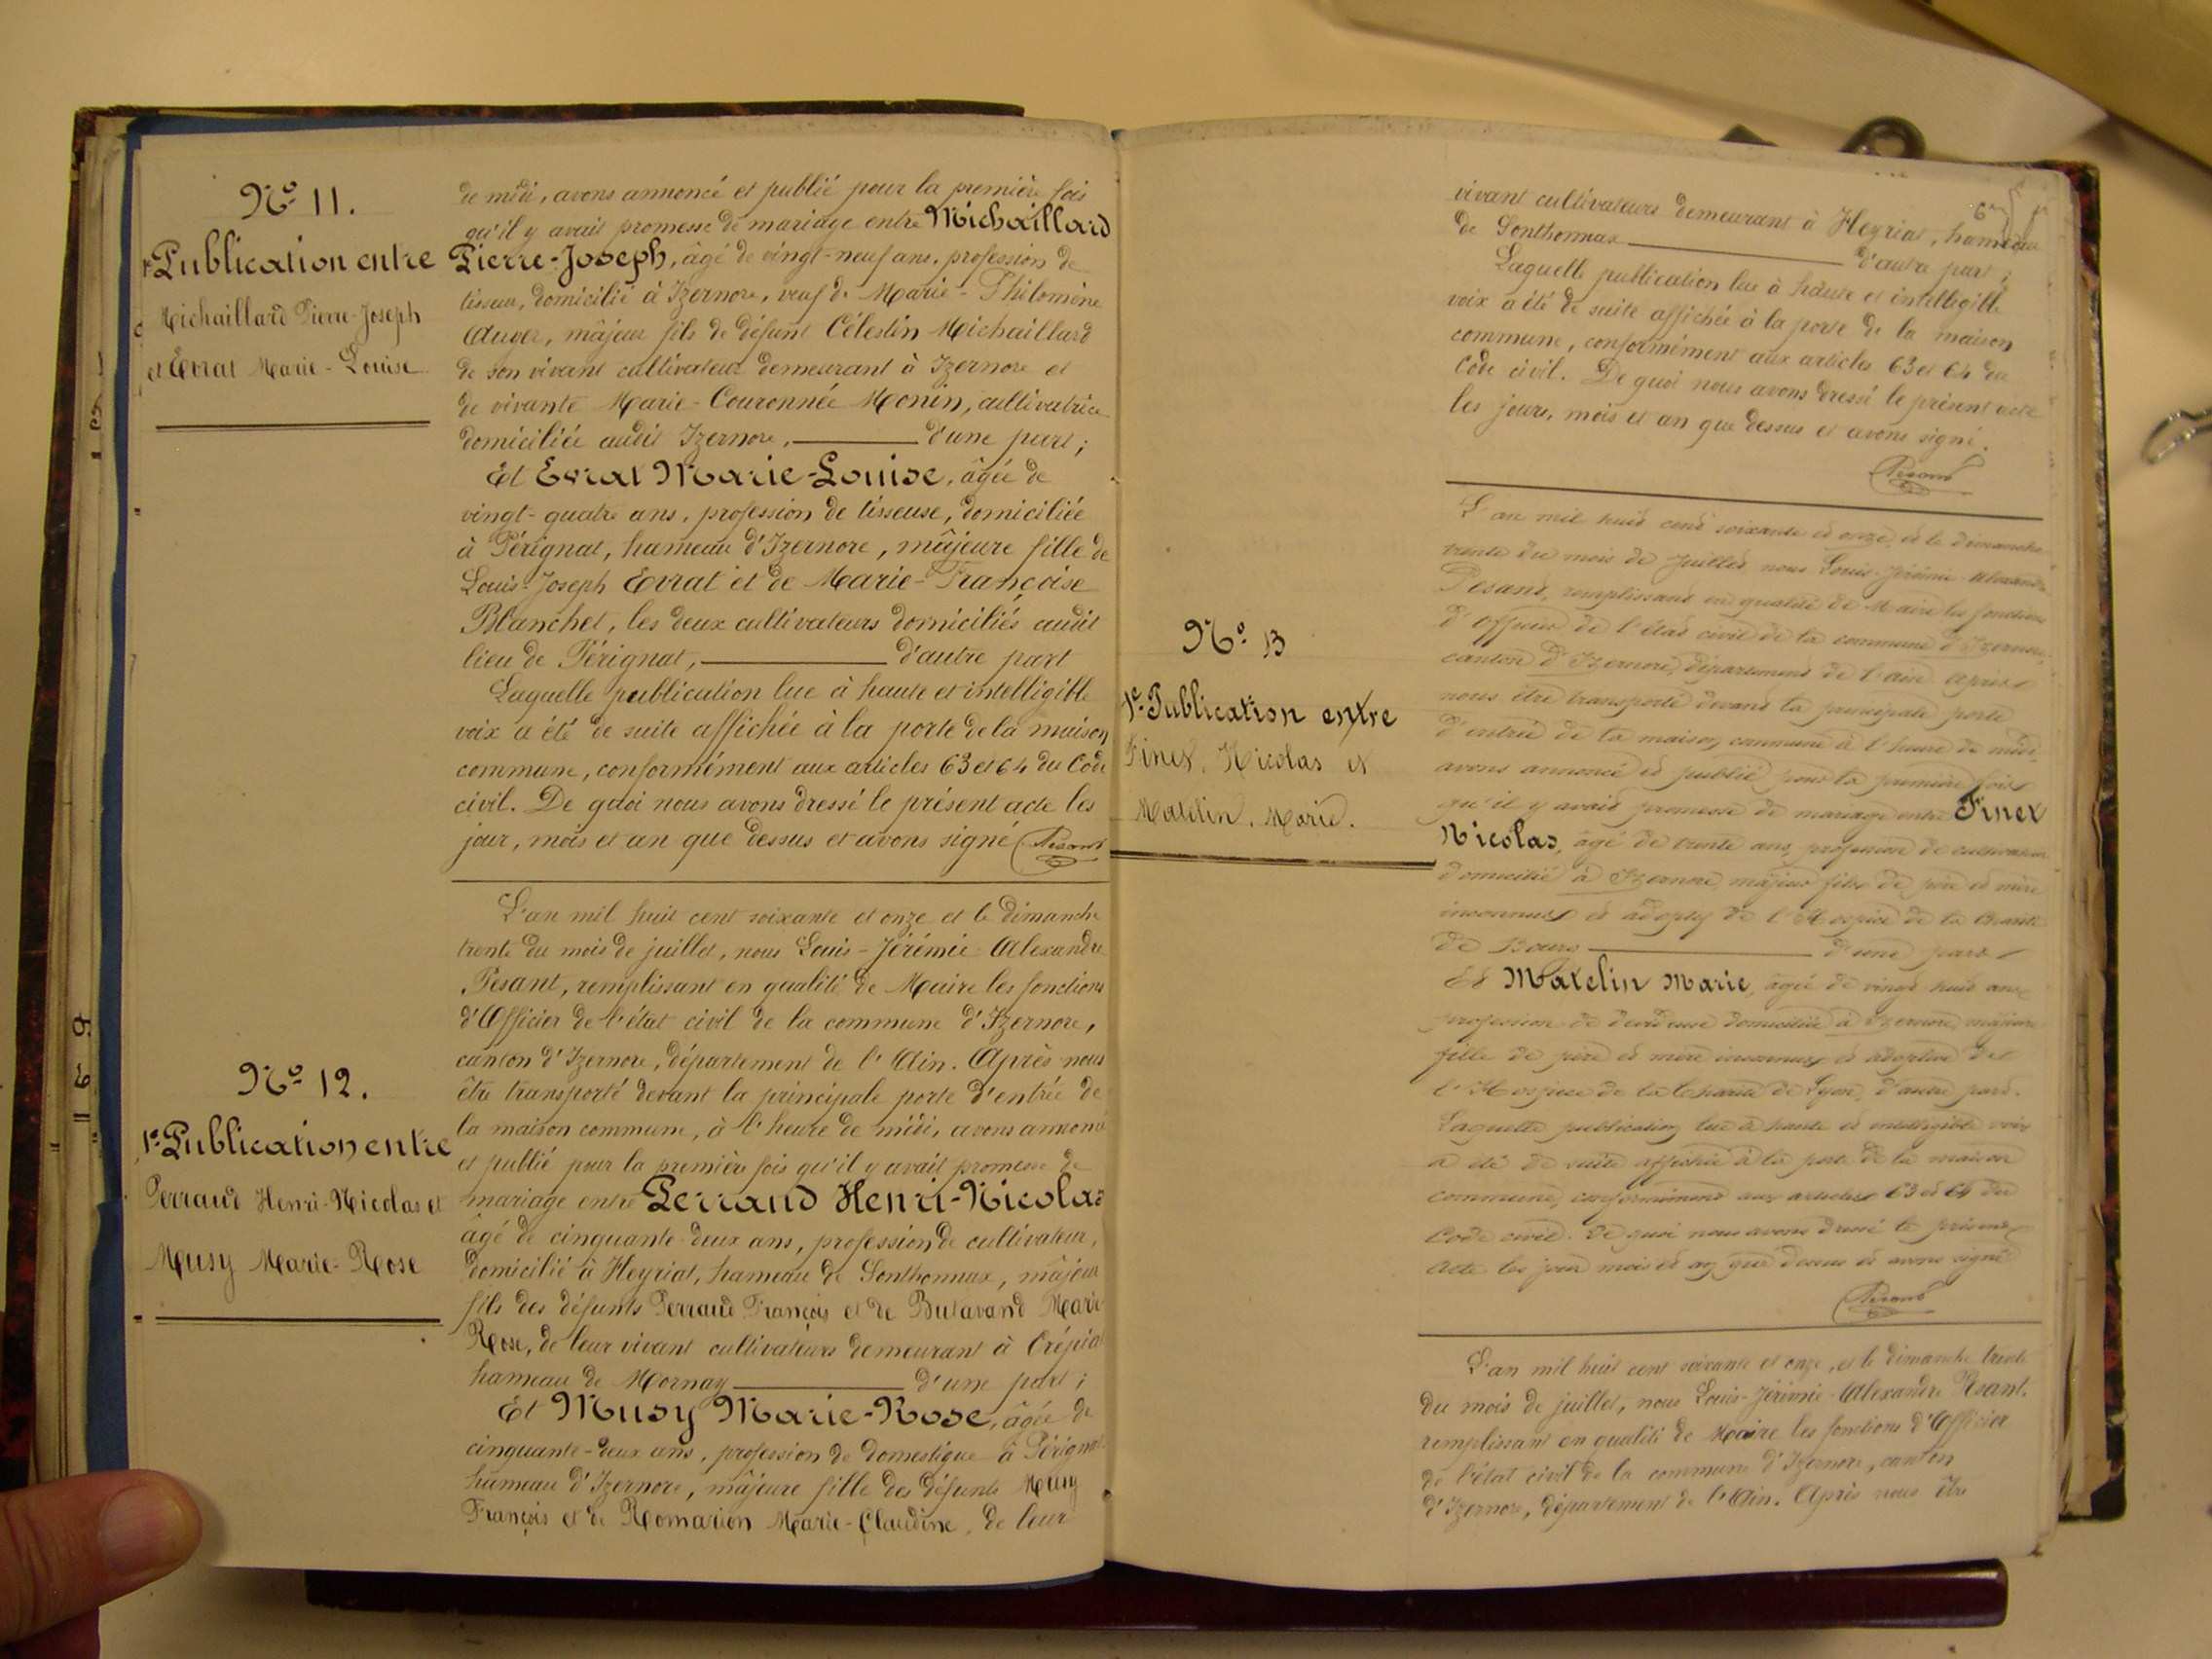 Nº 11.
1e Publication entre
Michaillard Pierre-Joseph
et Evrat Marie-Louise
de midi, avons annoncé et publié pour la première fois
qu'il y avait promesse de mariage entre Michaillard
Pierre-Joseph, âgé de vingt-neuf ans, profession de
tisseur, domicilié à Izernore, veuf de Marie-Philomène
Auger, mâjeur fils de défunt Célestin Michaillard
de son vivant cultivateur demeurant à Izernore et
de vivante Marie-Couronnée Monin, cultivatrice
domiciliée audit Izernore, d'une part;
Et Evrat Marie-Louise, âgée de
vingt-quatre ans, profession de tisseuse, domiciliée
à Pérignat, hameau d'Izernore, mâjeure fille de
Louis-Joseph Evrat et de Marie-Françoise
Blanchet, les deux cultivateurs domiciliés audit
lieu de Pérignat, d'autre part
Laquelle publication lue à haute et intelligible
voix a été de suite affichée à la porte de la maison
commune, conformément aux articles 63 et 64 du Code
civil. De quoi nous avons dressé le présent acte les
jour, mois et an que dessus et avons signé Pesant
Nº 12.
1e Publication entre
Perraud Henri-Nicolas et
Musy Marie-Rose
L'an mil huit cent soixante et onze et le dimanche
trente du mois de juillet, nous Louis-Jérémie Alexandre
Pesant, remplissant en qualité de Maire les fonctions
d'Officier de l'état civil de la commune d'Izernore,
canton d'Izernore, département de l'Ain. Après nous
être transporté devant la principale porte d'entrée de
la maison commune, à l'heure de midi, avons annoncé
et publié pour la première fois qu'il y avait promesse de
mariage entre Perraud Henri-Nicolas
âgé de cinquante-deux ans, profession de cultivateur,
domicilié à Heyriat, hameau de Sonthonnax, mâjeur
fils des défunts Perraud François et de Butavand Marie
Rose, de leur vivant cultivateurs demeurant à Crépiat
hameau de Mornay d'une part;
Et Musy Marie-Rose, âgée de
cinquante-deux ans, profession de domestique à Pérignat
hameau d'Izernore, mâjeure fille des défunts Musy
François et de Romarion Marie-Claudine, de leur
6e
vivant cultivateurs demeurant à Heyriat, hameau
de Sonthonnax d'autre part;
Laquelle publication lue à haute et intelligible
voix a été de suite affichée à la porte de la maison
commune, conformément aux articles 63 et 64 du
Code civil. De quoi nous avons dressé le présent acte
les jours, mois et an que dessus et avons signé.
Pesant
Nº 13
1e Publication entre
Finet, Nicolas et
Matelin, Marie.
L'an mil huit cent soixante et onze et le dimanche
trente du mois de Juillet nous Louis-Jérémie Alexandre
Pesant, remplissant en qualité de Maire les fonctions
d'Officier de l'état civil de la commune d'Izernore,
canton d'Izernore, département de l'ain après
nous être transporté devant la principale porte
d'entrée de la maison commune à l'heure de midi,
avons annoncé et publié pour la première fois
qu'il y avait promesse de mariage entre Finet
Nicolas, âgé de trente ans, profession de cultivateur
domicilié à Izernore, majeur fils de père et mère
inconnus et adoptif de l'Hospice de la Charité
de Bourg d'une part
Et Matelin Marie, âgée de vingt huit ans
profession de dévideuse domiciliée à Izernore, majeure
fille de père et mère inconnus et adoptive de
l'Hospice de la Charité de Lyon, d'autre part.
Laquelle publication lue à haute et intelligible voix
a été de suite affichée à la porte de la maison
commune, conformément aux articles 63 et 64 du
Code civil. De quoi nous avons dressé le présent
Acte les jour mois et an que dessus et avons signé
Pesant
L'an mil huit cent soixante et onze, et le dimanche trente
du mois de juillet, nous Louis-Jérémie-Alexandre Pesant.
remplissant en qualité de Maire les fonctions d'Officier
de l'état civil de la commune d'Izernore, canton
d'Izernore, département de l'Ain. Après nous être